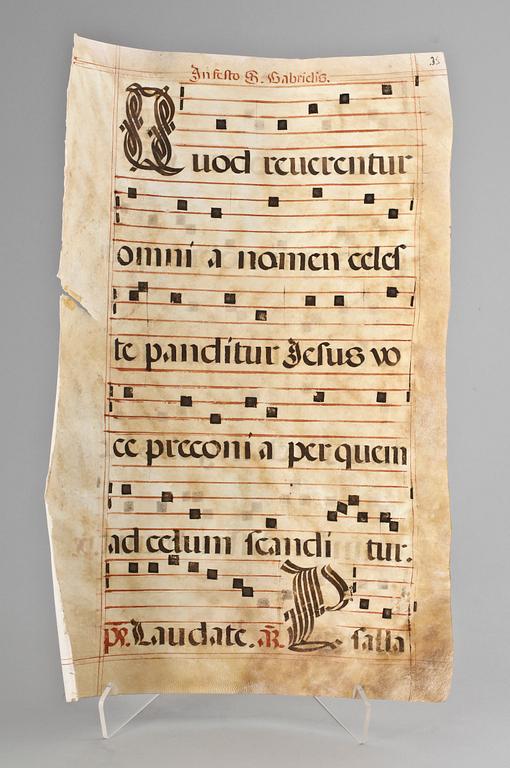 In festo S. Gabrielis.
Quod reuerentur
omni a nomen celes
te panditur Iesus vo
ce preconi a per quem
ad celum scandi tur.
ps. Laudate. añ. Psalla